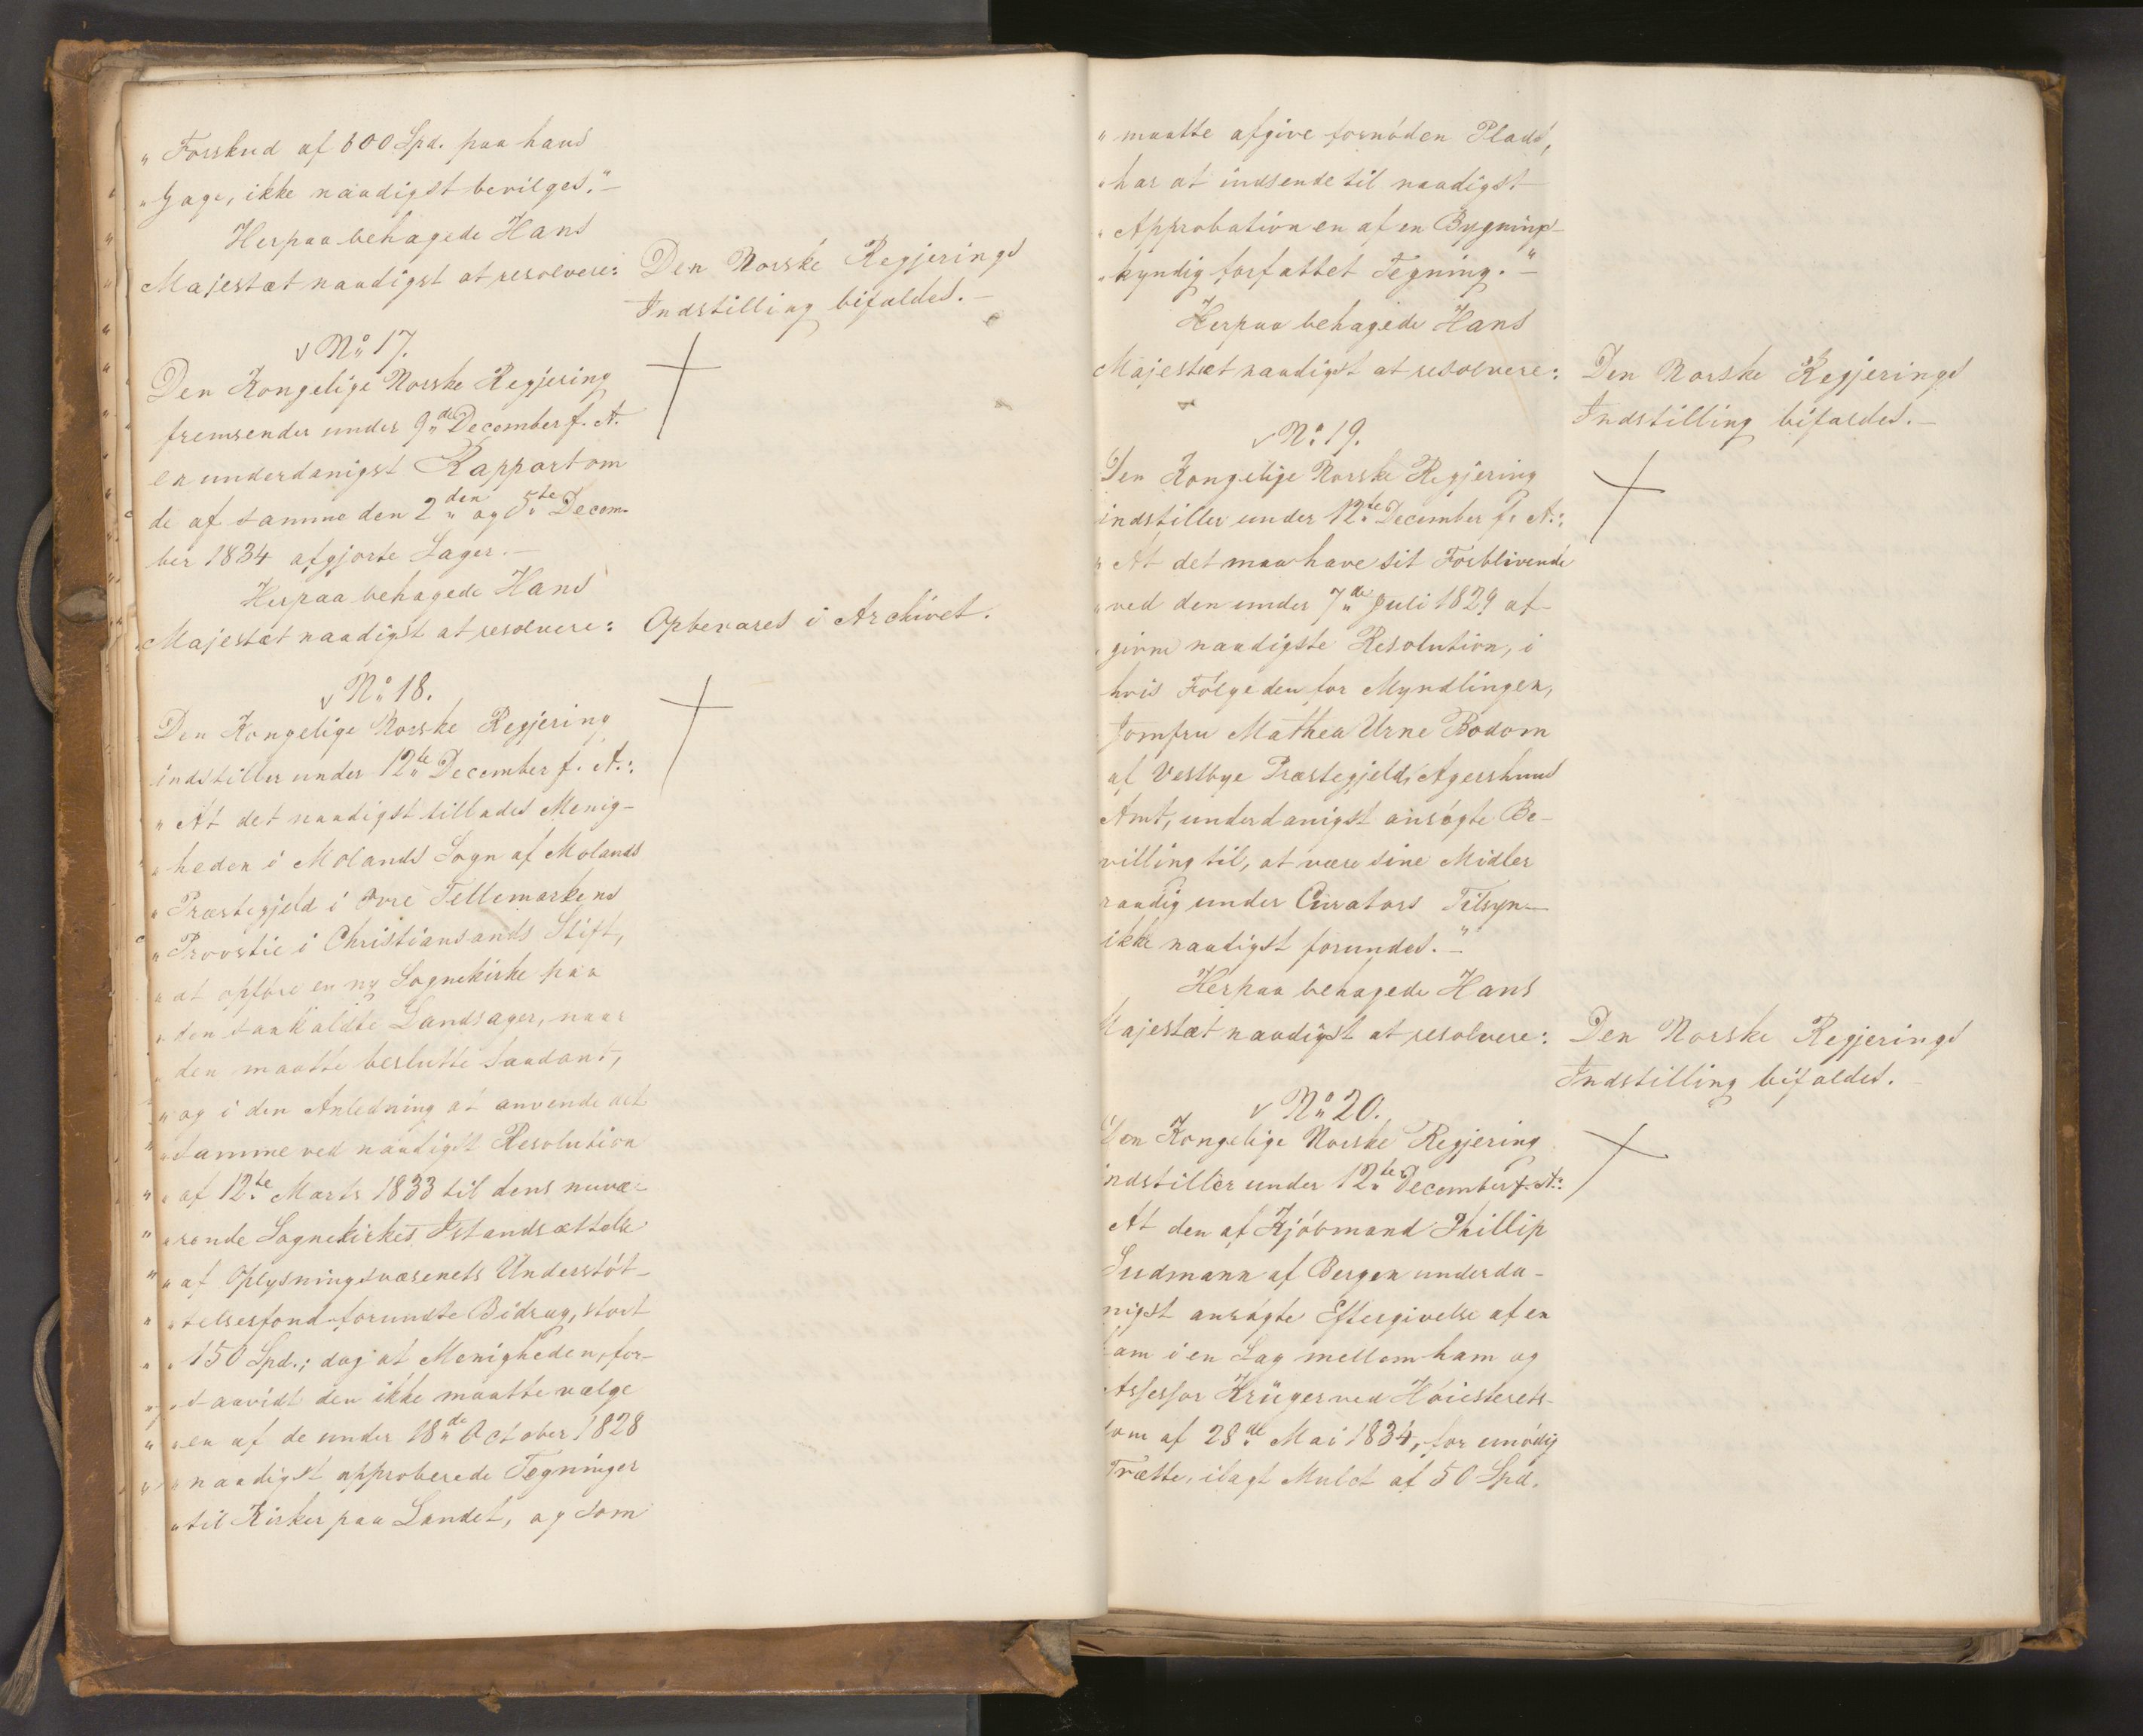 „Forskud af 600 Spd. paa hans
„Gage, ikke naadigst bevilges."—
Herpaa behagede Hans
Majestæt naadigst at resolvere:
Den Norske Regjerings
Indstilling bifaldes.—
No 17.
Den Kongelige Norske Regjering
fremsender under 9de December f. A.
en underdanigst Rapport om
de af samme den 2den og 5te Decem-
ber 1834 afgjorte Sager.—
Herpaa behagede Hans
Majestæt naadigst at resolvere:
Opbevares i Archivet.
No 18.
Den Kongelige Norske Regjering
indstiller under 12te December f. A.:
„At det naadigst tillades Menig-
„heden i Molands Sogn af Molands
„Præstegjeld i Øvre Tellemarkens
„Provstie i Christiansands Stift,
„at opføre en ny Sognekirke paa
„den saakaldte Landsager, naar
„den maatte beslutte saadant,
„og i den Anledning at anvende det
„samme ved naadigst Resolution
„af 12te Marts 1833 til dens nuvæ-
„rende Sognekirkes Istandsættelse
„af Oplysningsvæsenets Understøt-
„telsesfond forundte Bidrag, stort
„150 Spd.; dog at Menigheden, for-
„saavidt den ikke maatte vælge
„en af de under 18de October 1828
„naadigst approberede Tegninger
„til Kirker paa Landet, og som
„maatte afgive fornøden Plads,
„har at indsende til naadigst
„Approbation en af en Bygnings-
„kyndig forfattet Tegning."—
Herpaa behagede Hans
Majestæt naadigst at resolvere:
Den Norske Regjerings
Indstilling bifaldes.—
No 19.
Den Kongelige Norske Regjering
indstiller under 12te December f. A.:
„At det maa have sit Forblivende
„ved den under 7de Juli 1829 af-
„givne naadigste Resolution, i
hvis Følge den for Myndlingen,
Jomfru Mathea Urne Bodom
af Vestbye Præstegjeld, Agershuus
Amt, underdanigst ansøgte Be-
villing til, at være sine Midler
raadig under Curators Tilsyn—
ikke naadigst forundes."—
Herpaa behagede Hans
Majestæt naadigst at resolvere:
Den Norske Regjerings
Indstilling bifaldes.—
No 20.
Den Kongelige Norske Regjering
indstiller under 12te December f. A.:
At den af Kjøbmand Phillip
Sudmann af Bergen underda-
nigst ansøgte Eftergivelse af en
ham i en Sag mellem ham og
Assessor Krüger ved Høiesterets-
dom af 28de Mai 1834, for unødig
Trætte, ilagt Mulct af 50 Spd.